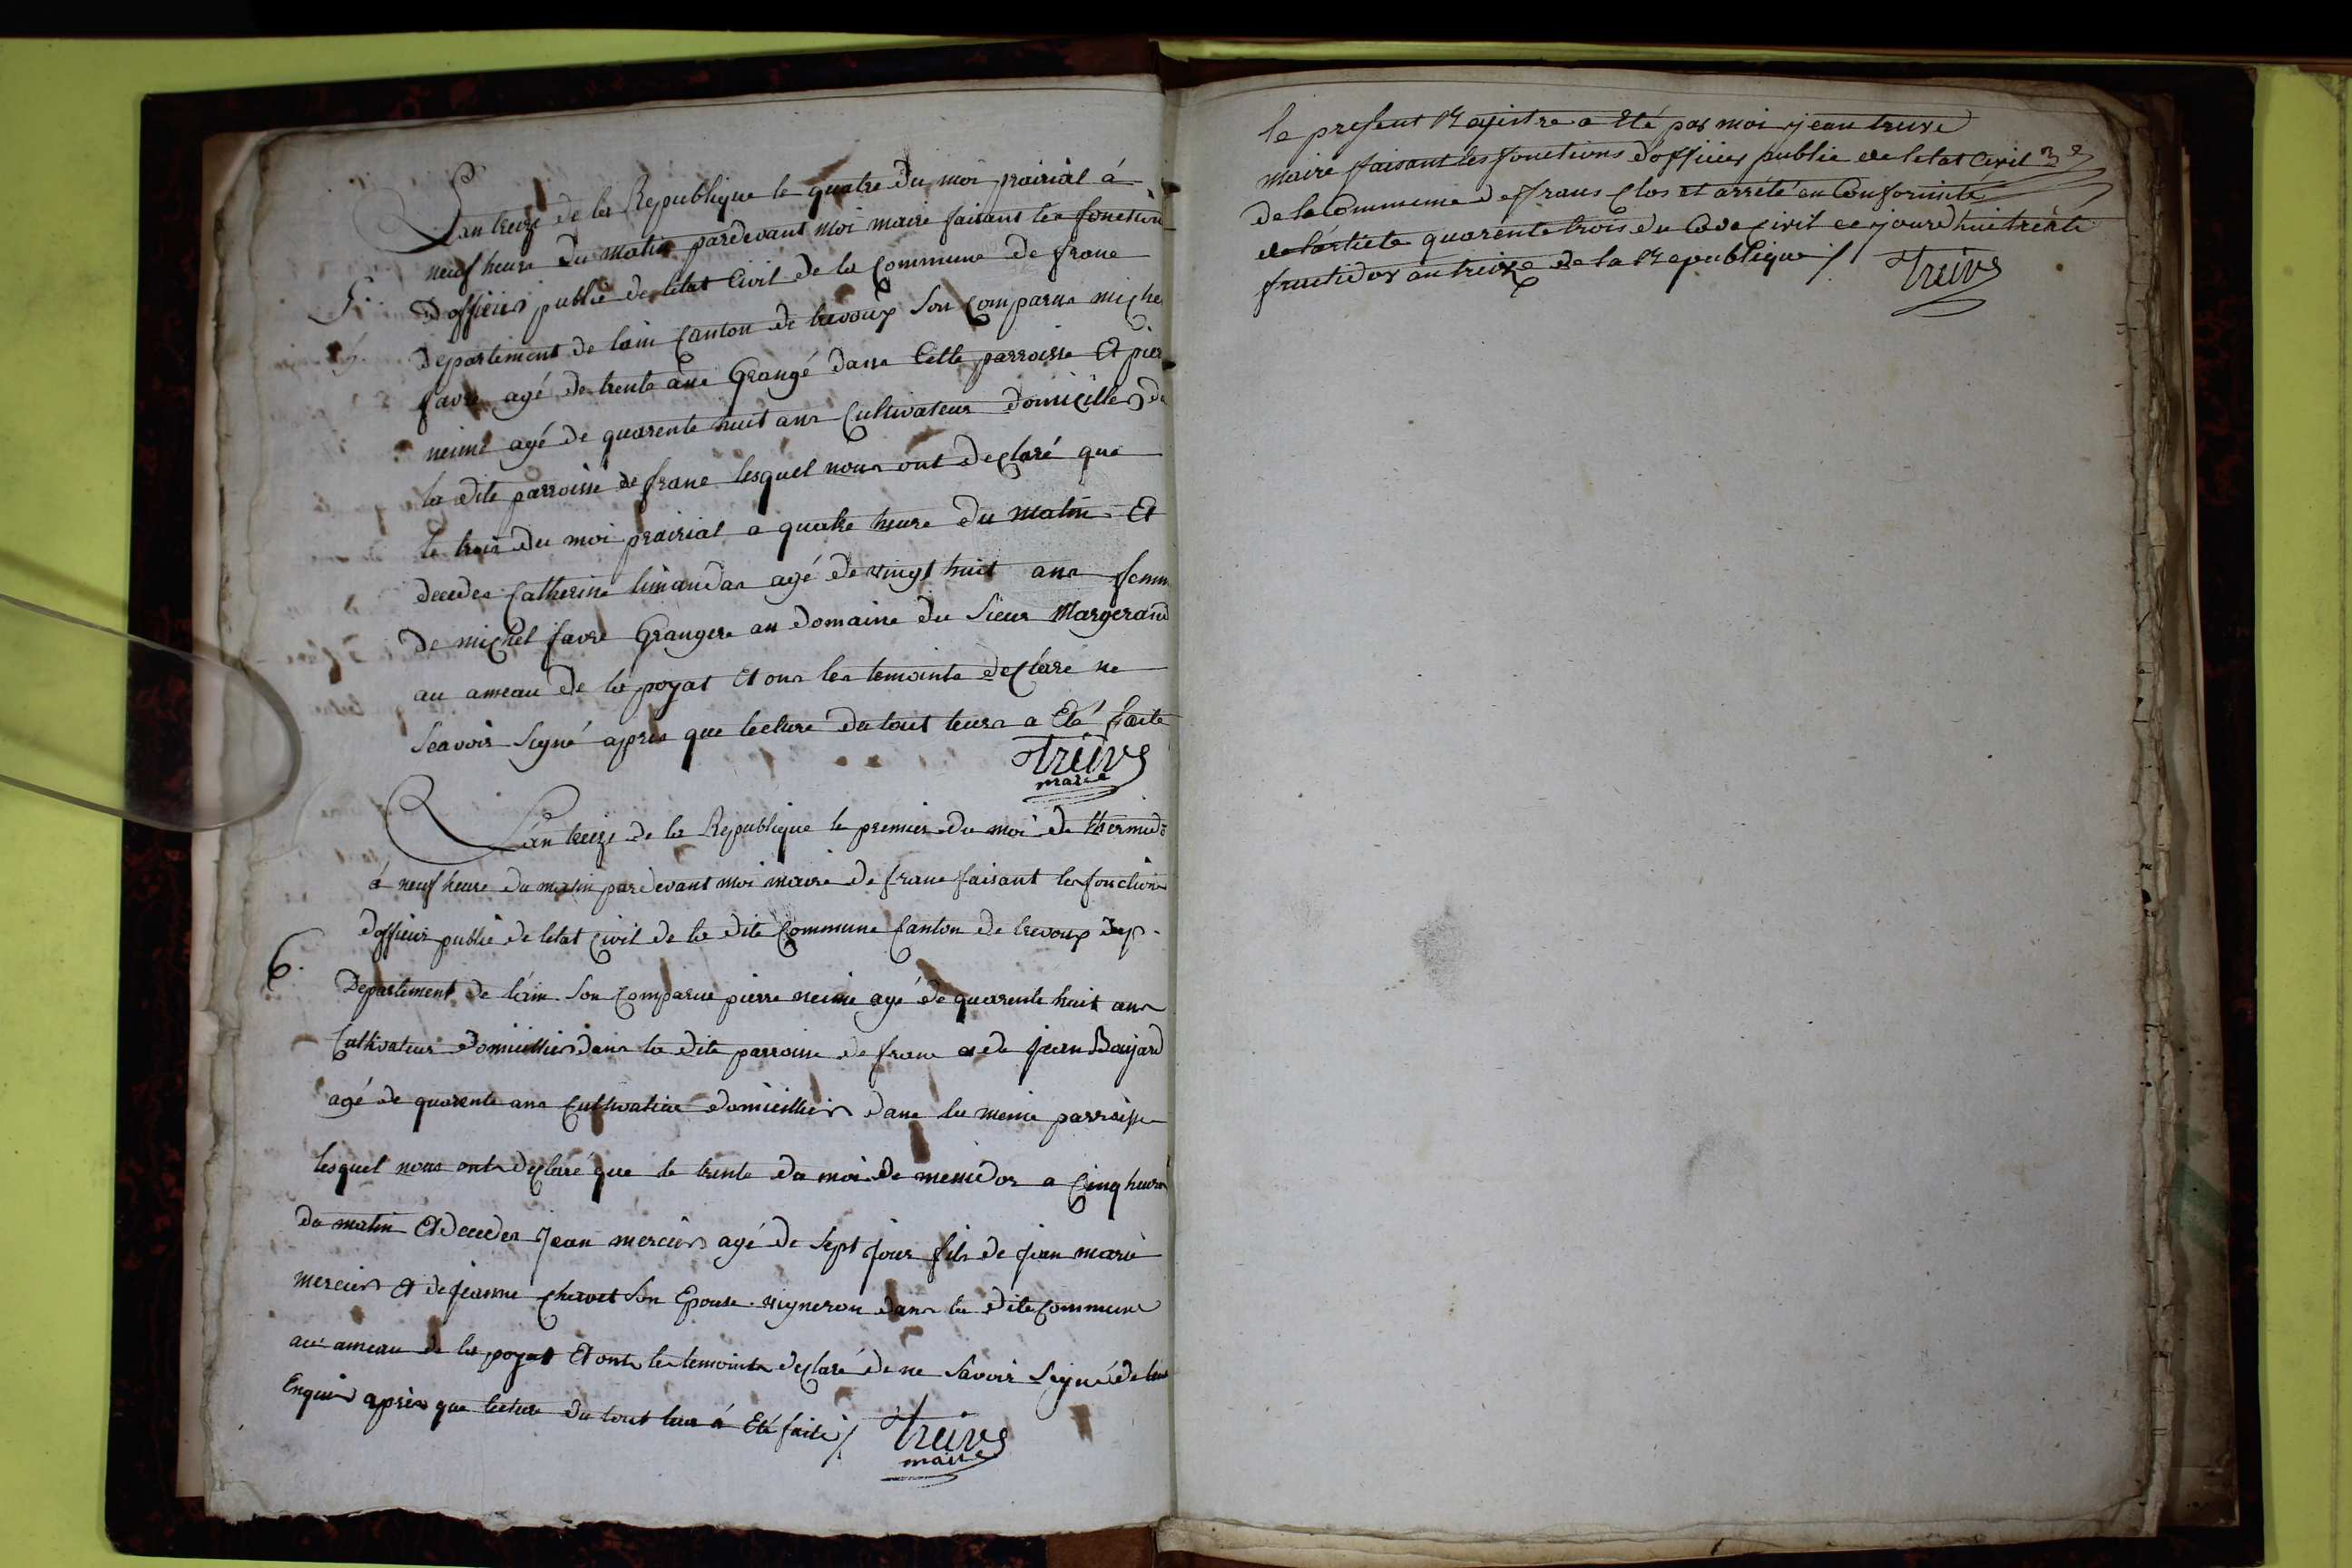 Lan treize de la Republique le quatre du moi prairial á
neuf heure du matin pardevant moi maire faisant les fonction
5. D'officier public de letat Civil de la Commune de frane
Departement de lain Canton de trevoux Son Comparue miche
favre agé de trente ans Grangé dans Cette parroisse Et pier
neime agé de quarente huit ans Cultivateur Domicillier da
la dite parroisse de frane lesquel nous ont declaré que
le trois du moi prairial a quatre heure du matin Et
decedes Catherine limandas agé de vingt huit ans femm
De michel favre Grangere au Domaine du Sieur Margerand
au ameau de la poyat Et ons les temoints declare ne
Seavoir Signé apres que lecture du tout leurs a Eté faite
Treive
maire
Lan treize de la Republique le premier du moi de thermido
á neuf heure du matin pardevant moi maire de frane faisant les fonction
dofficier public de letat Civil de la dite Commune Canton de trevoux dep.
6. Departement de lain Son Comparue pierre neime agé de quarente huit ans
Cultivateur domicillier dans la dite parroisse de frane et de jean Bayard
agé de quarente ans Cultivateur domicillier dans la meme parroisse
lesquel nous onts declaré que le trente du moi de mesidor a Cinq heure
du matin Et decedes Jean mercier agé de Sept jour fils de jean marie
mercier Et de jeanne Chervet Son Epouse vigneron dans la dite Commune
au ameau de la poyat Et onts les temoints declaré de ne Savoir Signé de leur
Enquis apres que lecture du tout leur á Eté faite /
Treive
maire
le present Regeistre a Eté par moi jean treive
maire faisant les fonctions d'officier public de letat Civil
de la Commune de frans Clos et arrété en Conformité
de l'article quarente trois du Code Civil ce jourd'hui trente
fructidor an treize de la Republique /. Treive